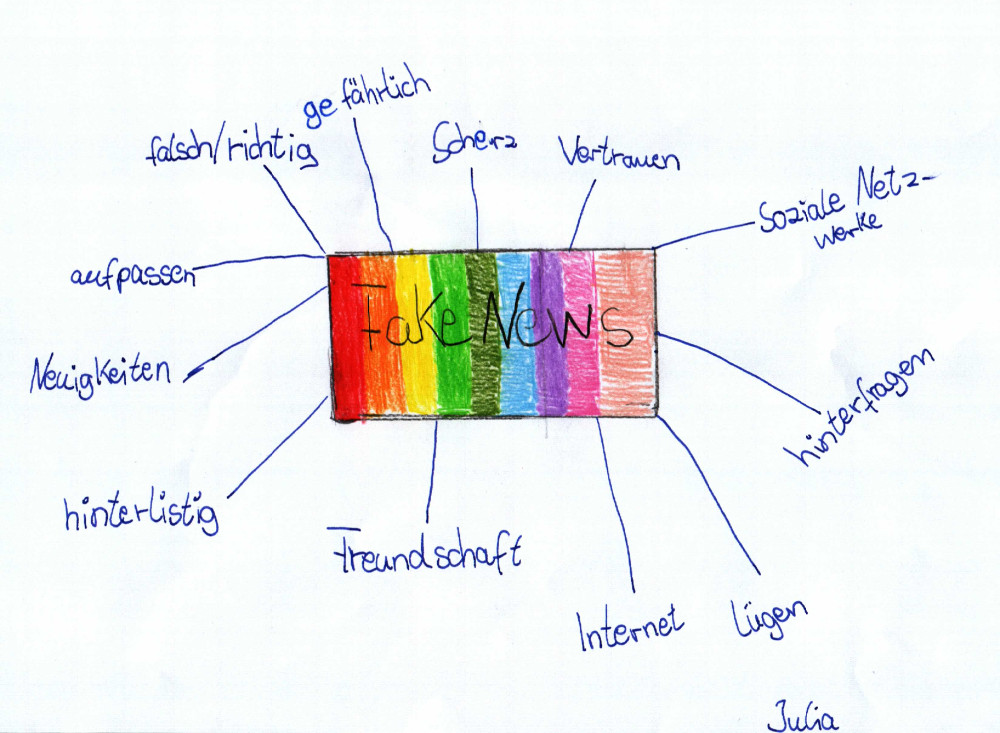 gefährlich
falsch/richtig
Scherz
Vertrauen
Soziale Netz-
werke
aufpassen
Fake News
Neuigkeiten
hinterfragen
hinterlistig
Freundschaft
Internet
Lügen
Julia